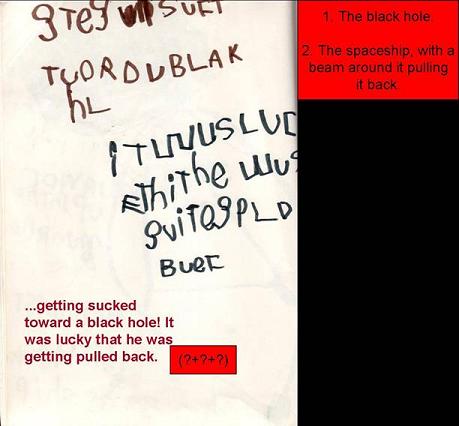 gTeg
TWORDUBLAK
hL
iTWUSLUC
thithe WUS
guiTegPLD
BUEK
...getting sucked
toward a black hole! It
was lucky that he was
getting pulled back.
(?+?+?)
1. The black hole.
2. The spaceship, with a
beam around it pulling
it back.